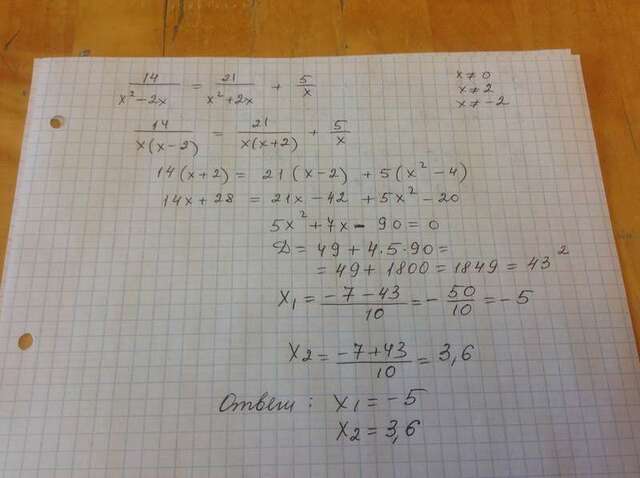 14/(x²-2x) = 21/(x²+2x) + 5/x
x≠0
x≠2
x≠-2
14/(x(x-2)) = 21/(x(x+2)) + 5/x
14(x+2) = 21(x-2) + 5(x²-4)
14x+28 = 21x-42 + 5x²-20
5x²+7x-90=0
D=49+4·5·90=
=49+1800=1849=43²
x₁=(-7-43)/10=-50/10=-5
x₂=(-7+43)/10=3,6
Ответ: x₁=-5
x₂=3,6